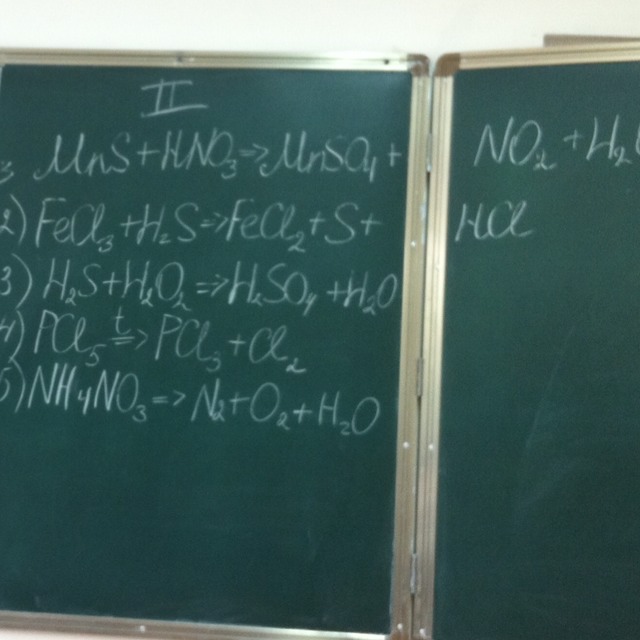 II
MnS+HNO₃⇒MnSO₄+ NO₂+H₂O
2) FeCl₃+H₂S⇒FeCl₂+S+ HCl
3) H₂S+H₂O₂⇒H₂SO₄+H₂O
4) PCl₅ t⇒ PCl₃+Cl₂
5) NH₄NO₃⇒N₂+O₂+H₂O